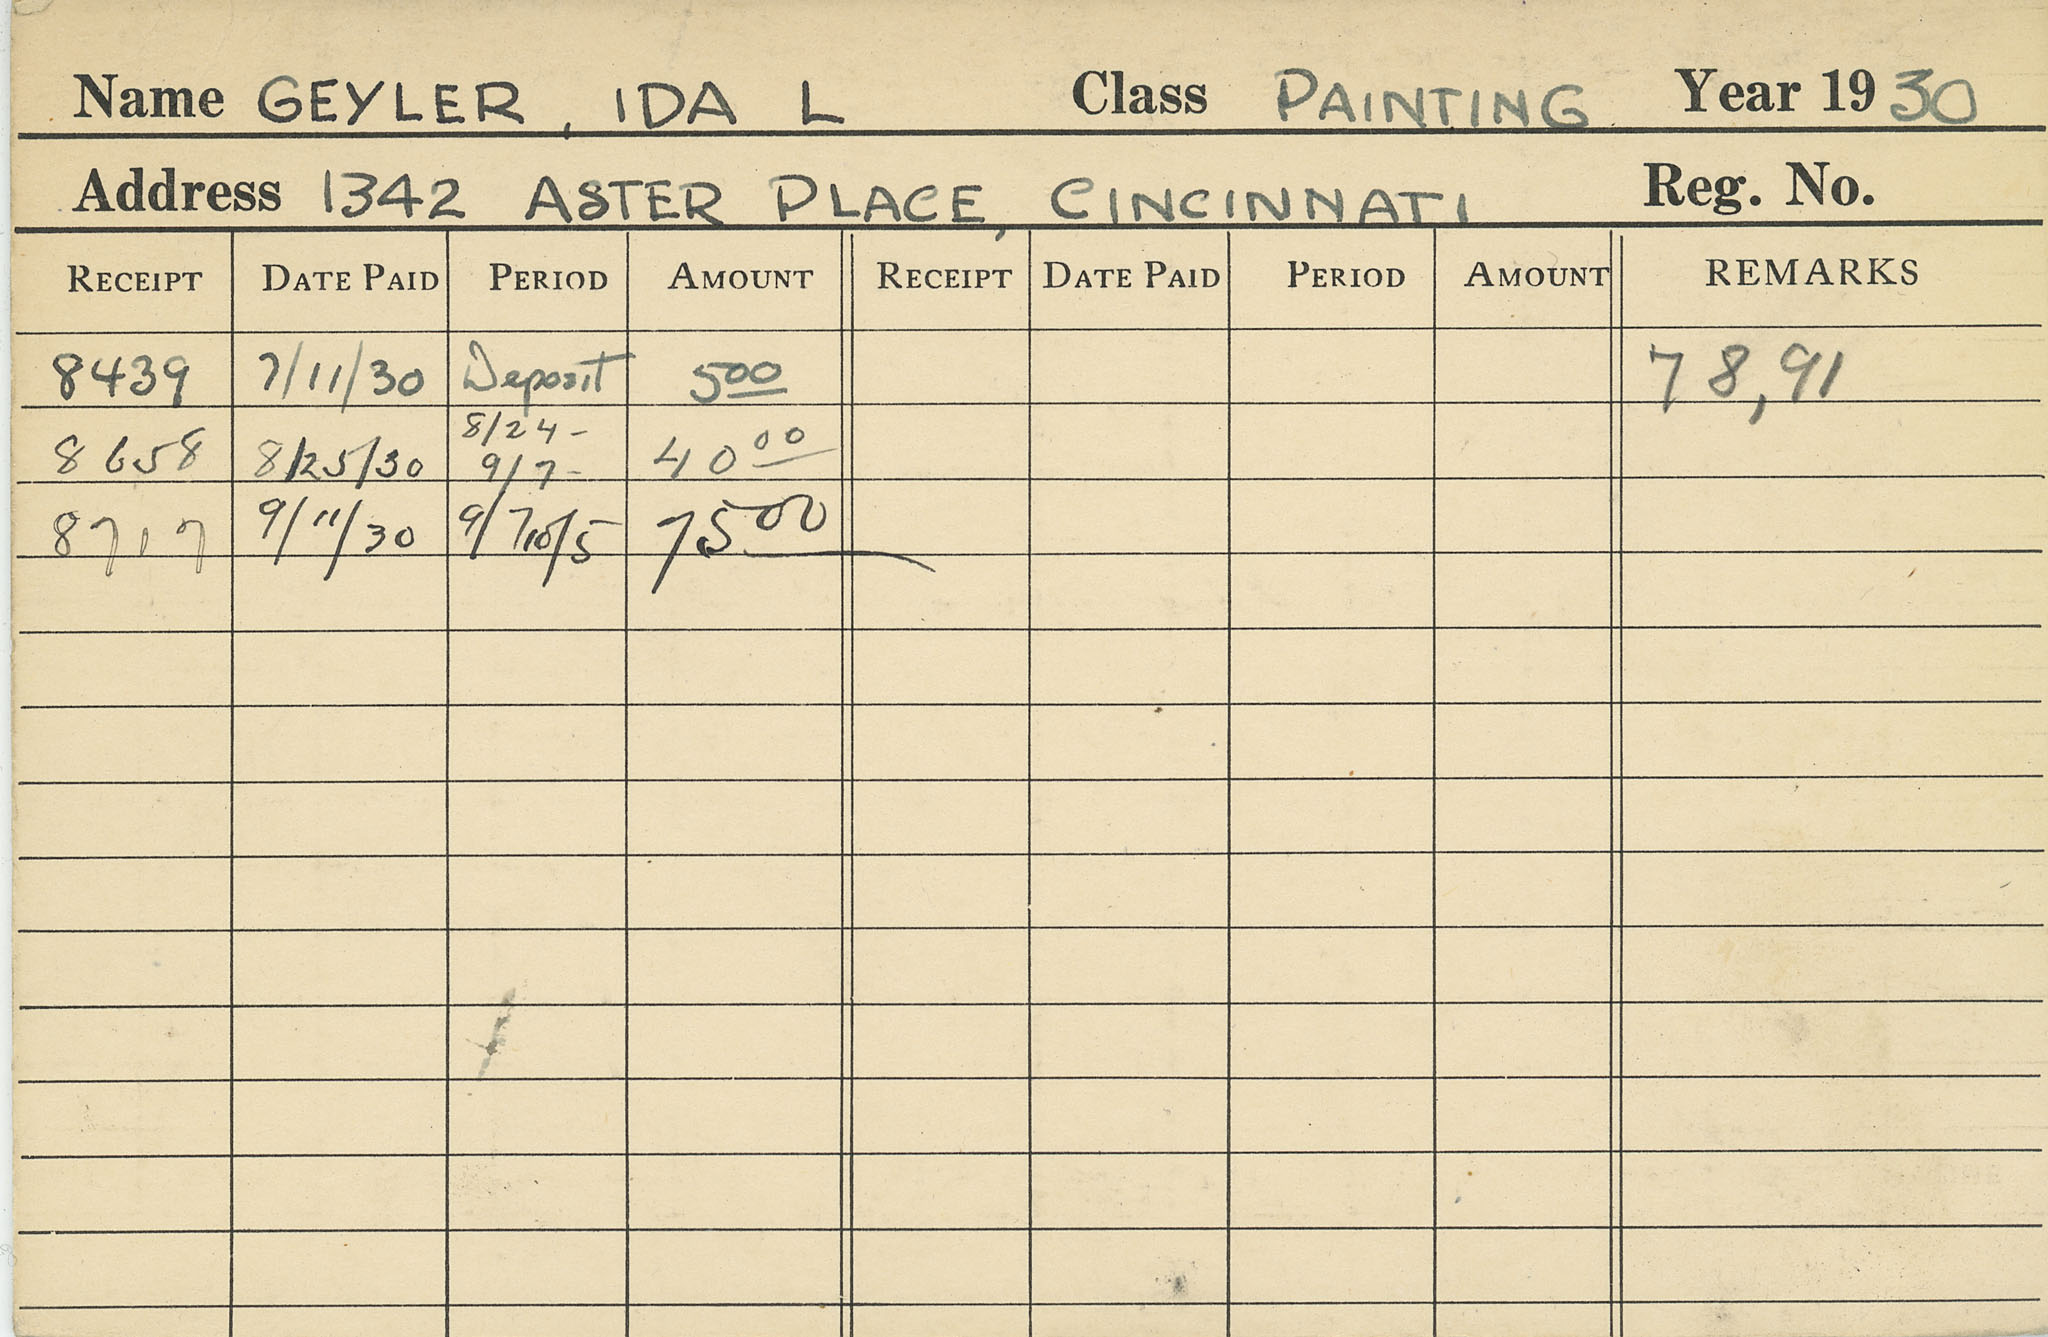 Name GEYLER, IDA L Class PAINTING Year 1930
Address 1342 ASTER PLACE, CINCINNATI Reg. No.
RECEIPT DATE PAID PERIOD AMOUNT RECEIPT DATE PAID PERIOD AMOUNT REMARKS
8439 7/11/30 Deposit 5 00 78,91
8658 8/25/30 8/24- 9/7- 40 00
8717 9/11/30 9/7 10/5 75 00